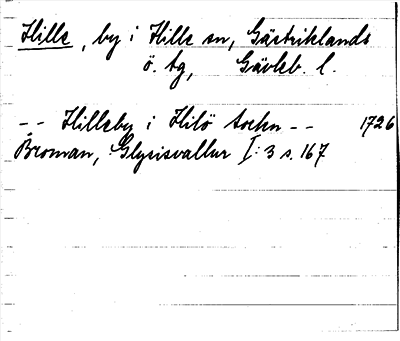 Hille, by i Hille sn, Gästriklands
ö. tg, Gävleb. l.
-- Hilleby i Hilö sochn -- 1726
Broman, Glysisvallur I: 3 s. 167